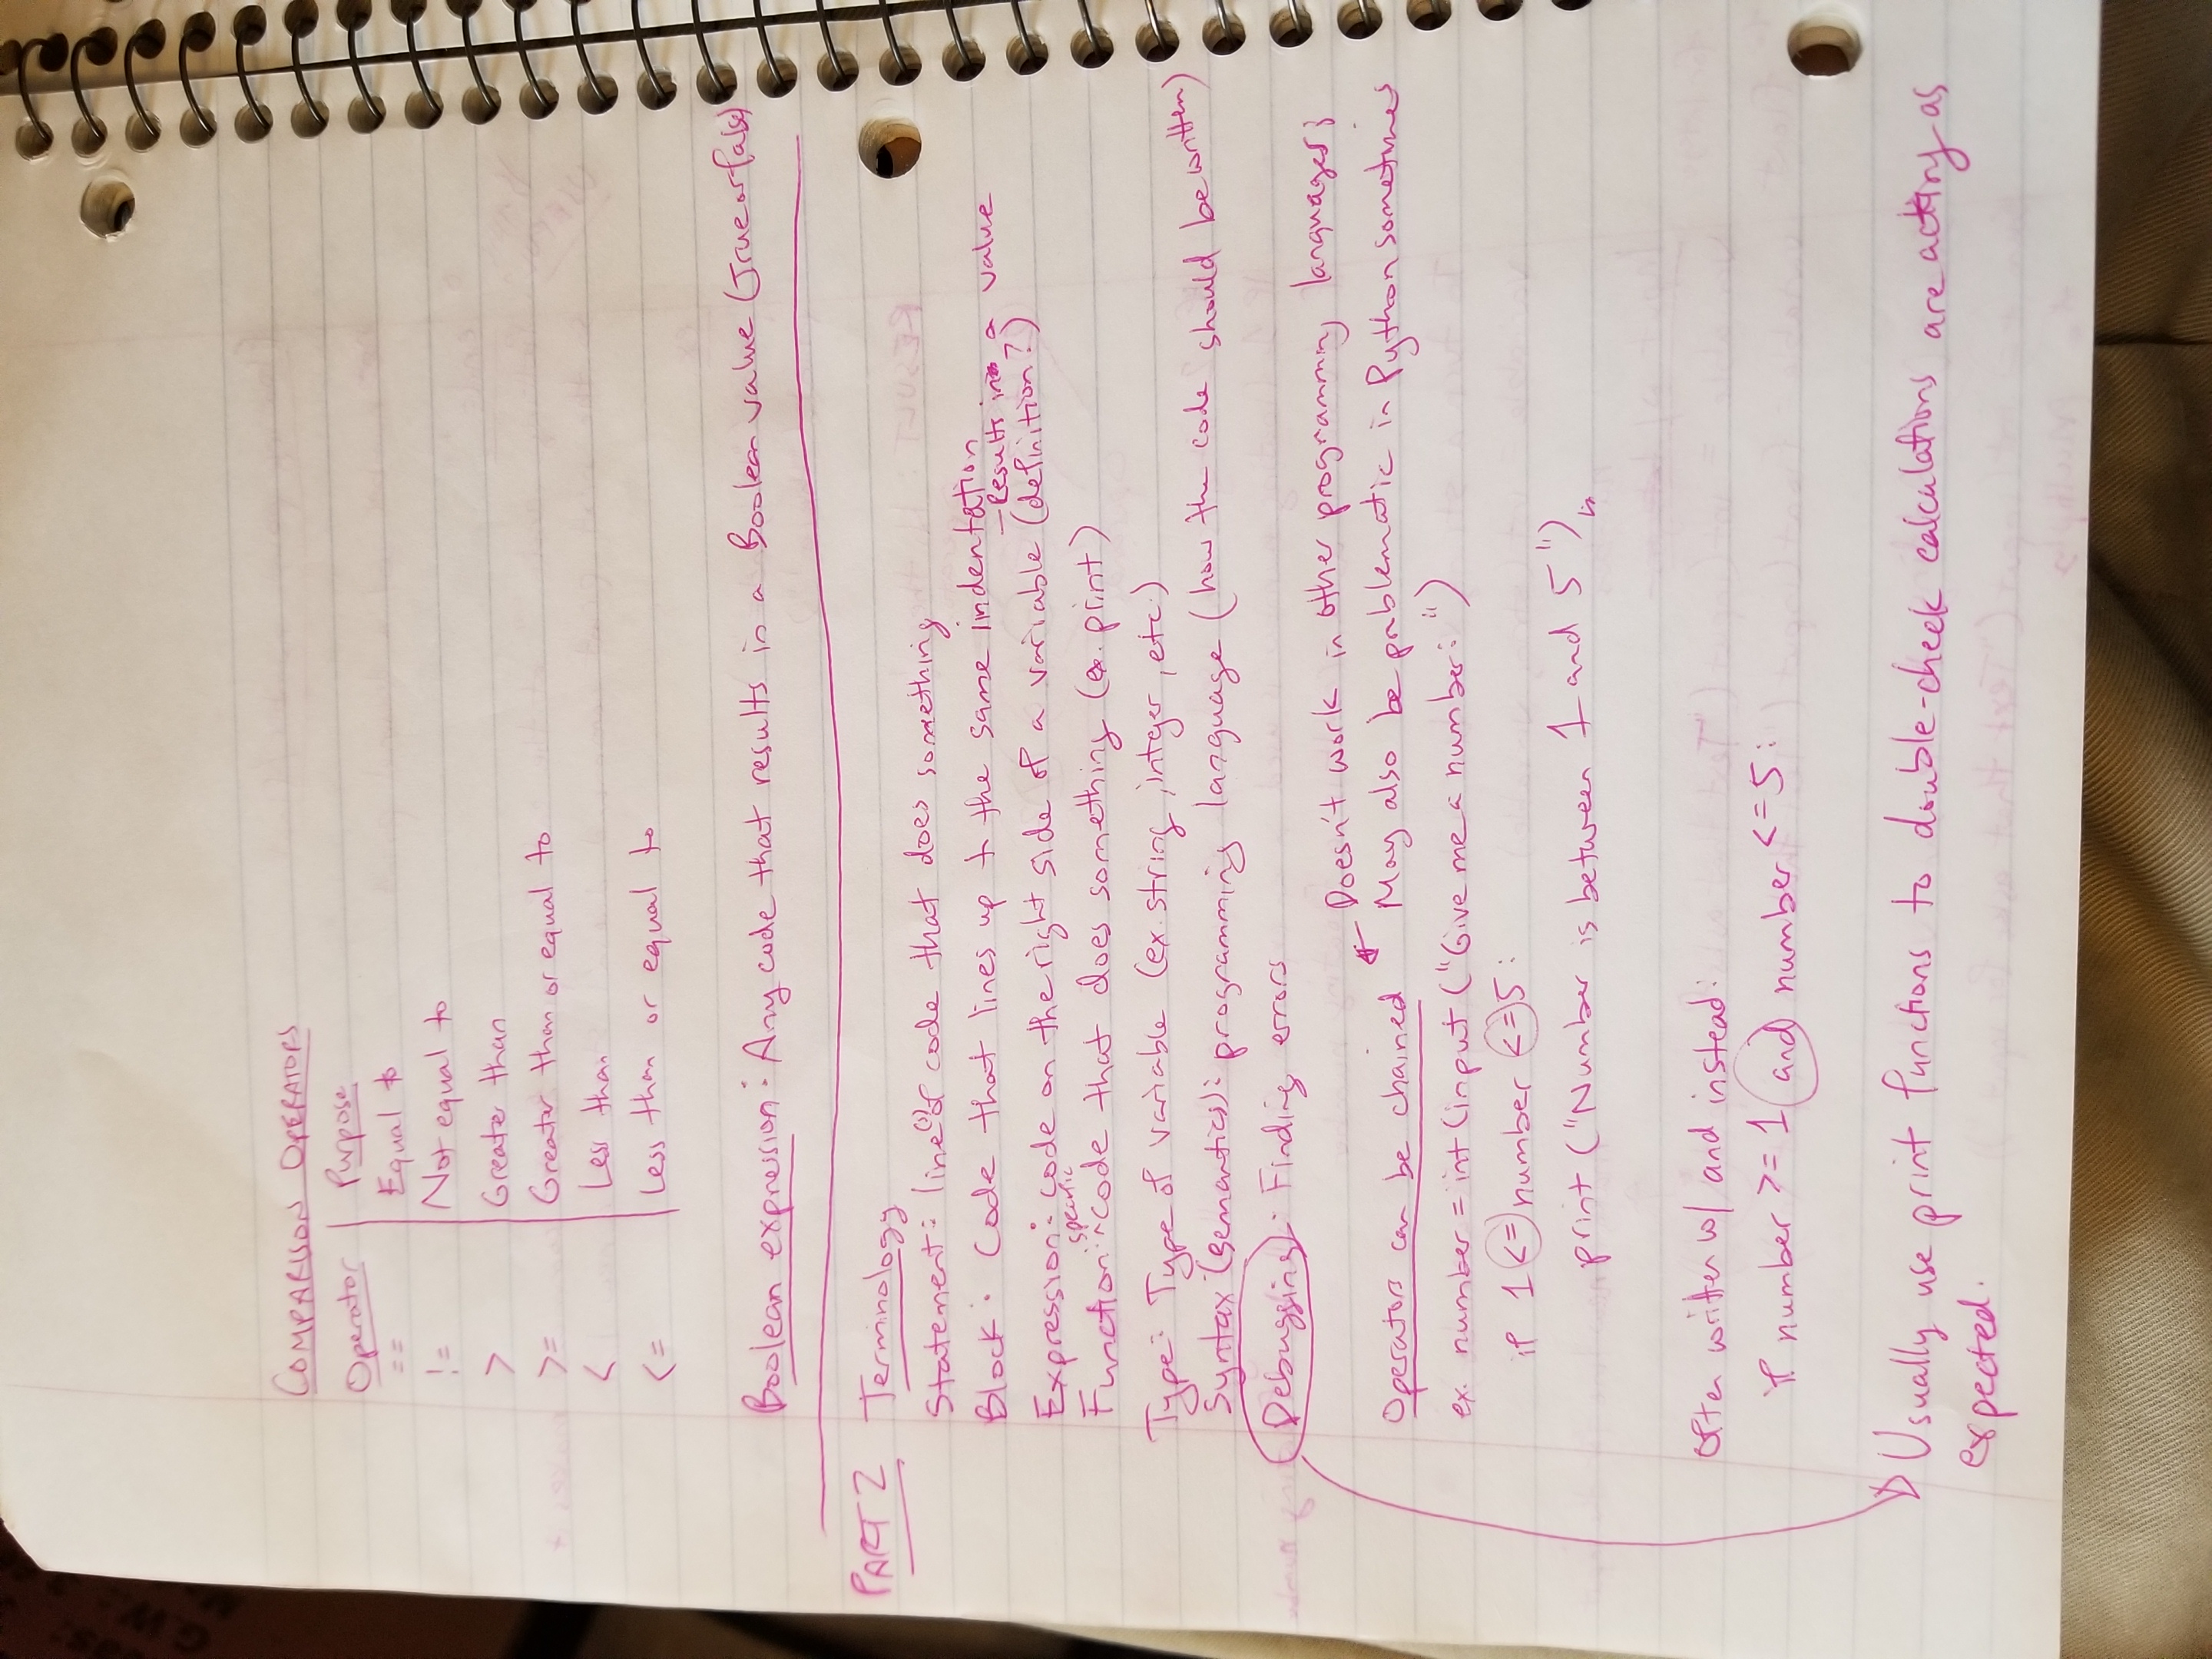 COMPARISON OPERATORS
Operator | Purpose
== | Equal to
!= | Not equal to
> | Greater than
>= | Greater than or equal to
< | Less than
<= | Less than or equal to
Boolean expression: Any code that results in a Boolean value (True or false)
PART 2 Terminology
Statement: line(s) of code that does something
Block: Code that lines up to the same indentation
- Results in a value
Expression: code on the right side of a variable (definition?)
specific
Function: ^code that does something (ex. print)
Type: Type of variable (ex. string, integer, etc.)
Syntax (semantics): programming language (how the code should be written)
Debugging: Finding errors
Doesn't work in other programming languages;
Operators can be chained ← May also be problematic in Python sometimes
ex. number = int(input("Give me a number: ")
if 1 <= number <= 5:
print ("Number is between 1 and 5")
Often written w/ and instead:
if number >= 1 and number <= 5:
Usually use print functions to double-check calculations are acting as
expected.